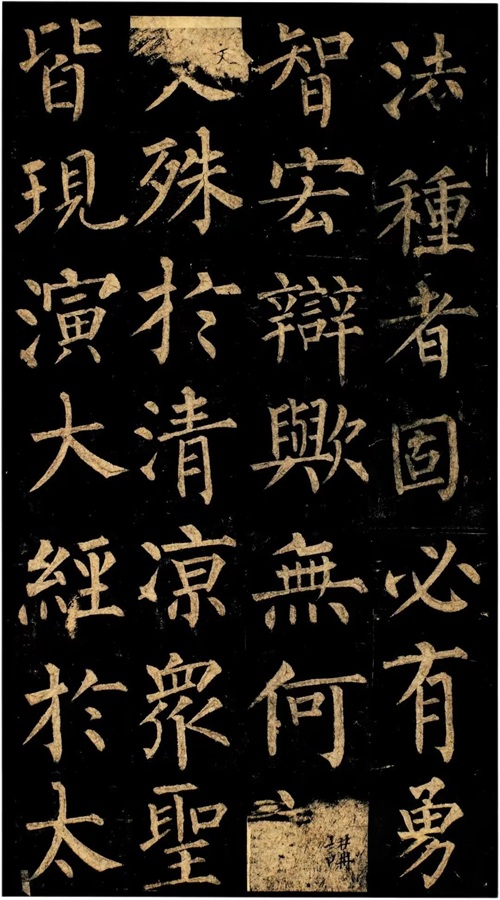 法種者固必有勇
智宏辯歟無何
文殊於清凉眾聖
皆現演大經於太